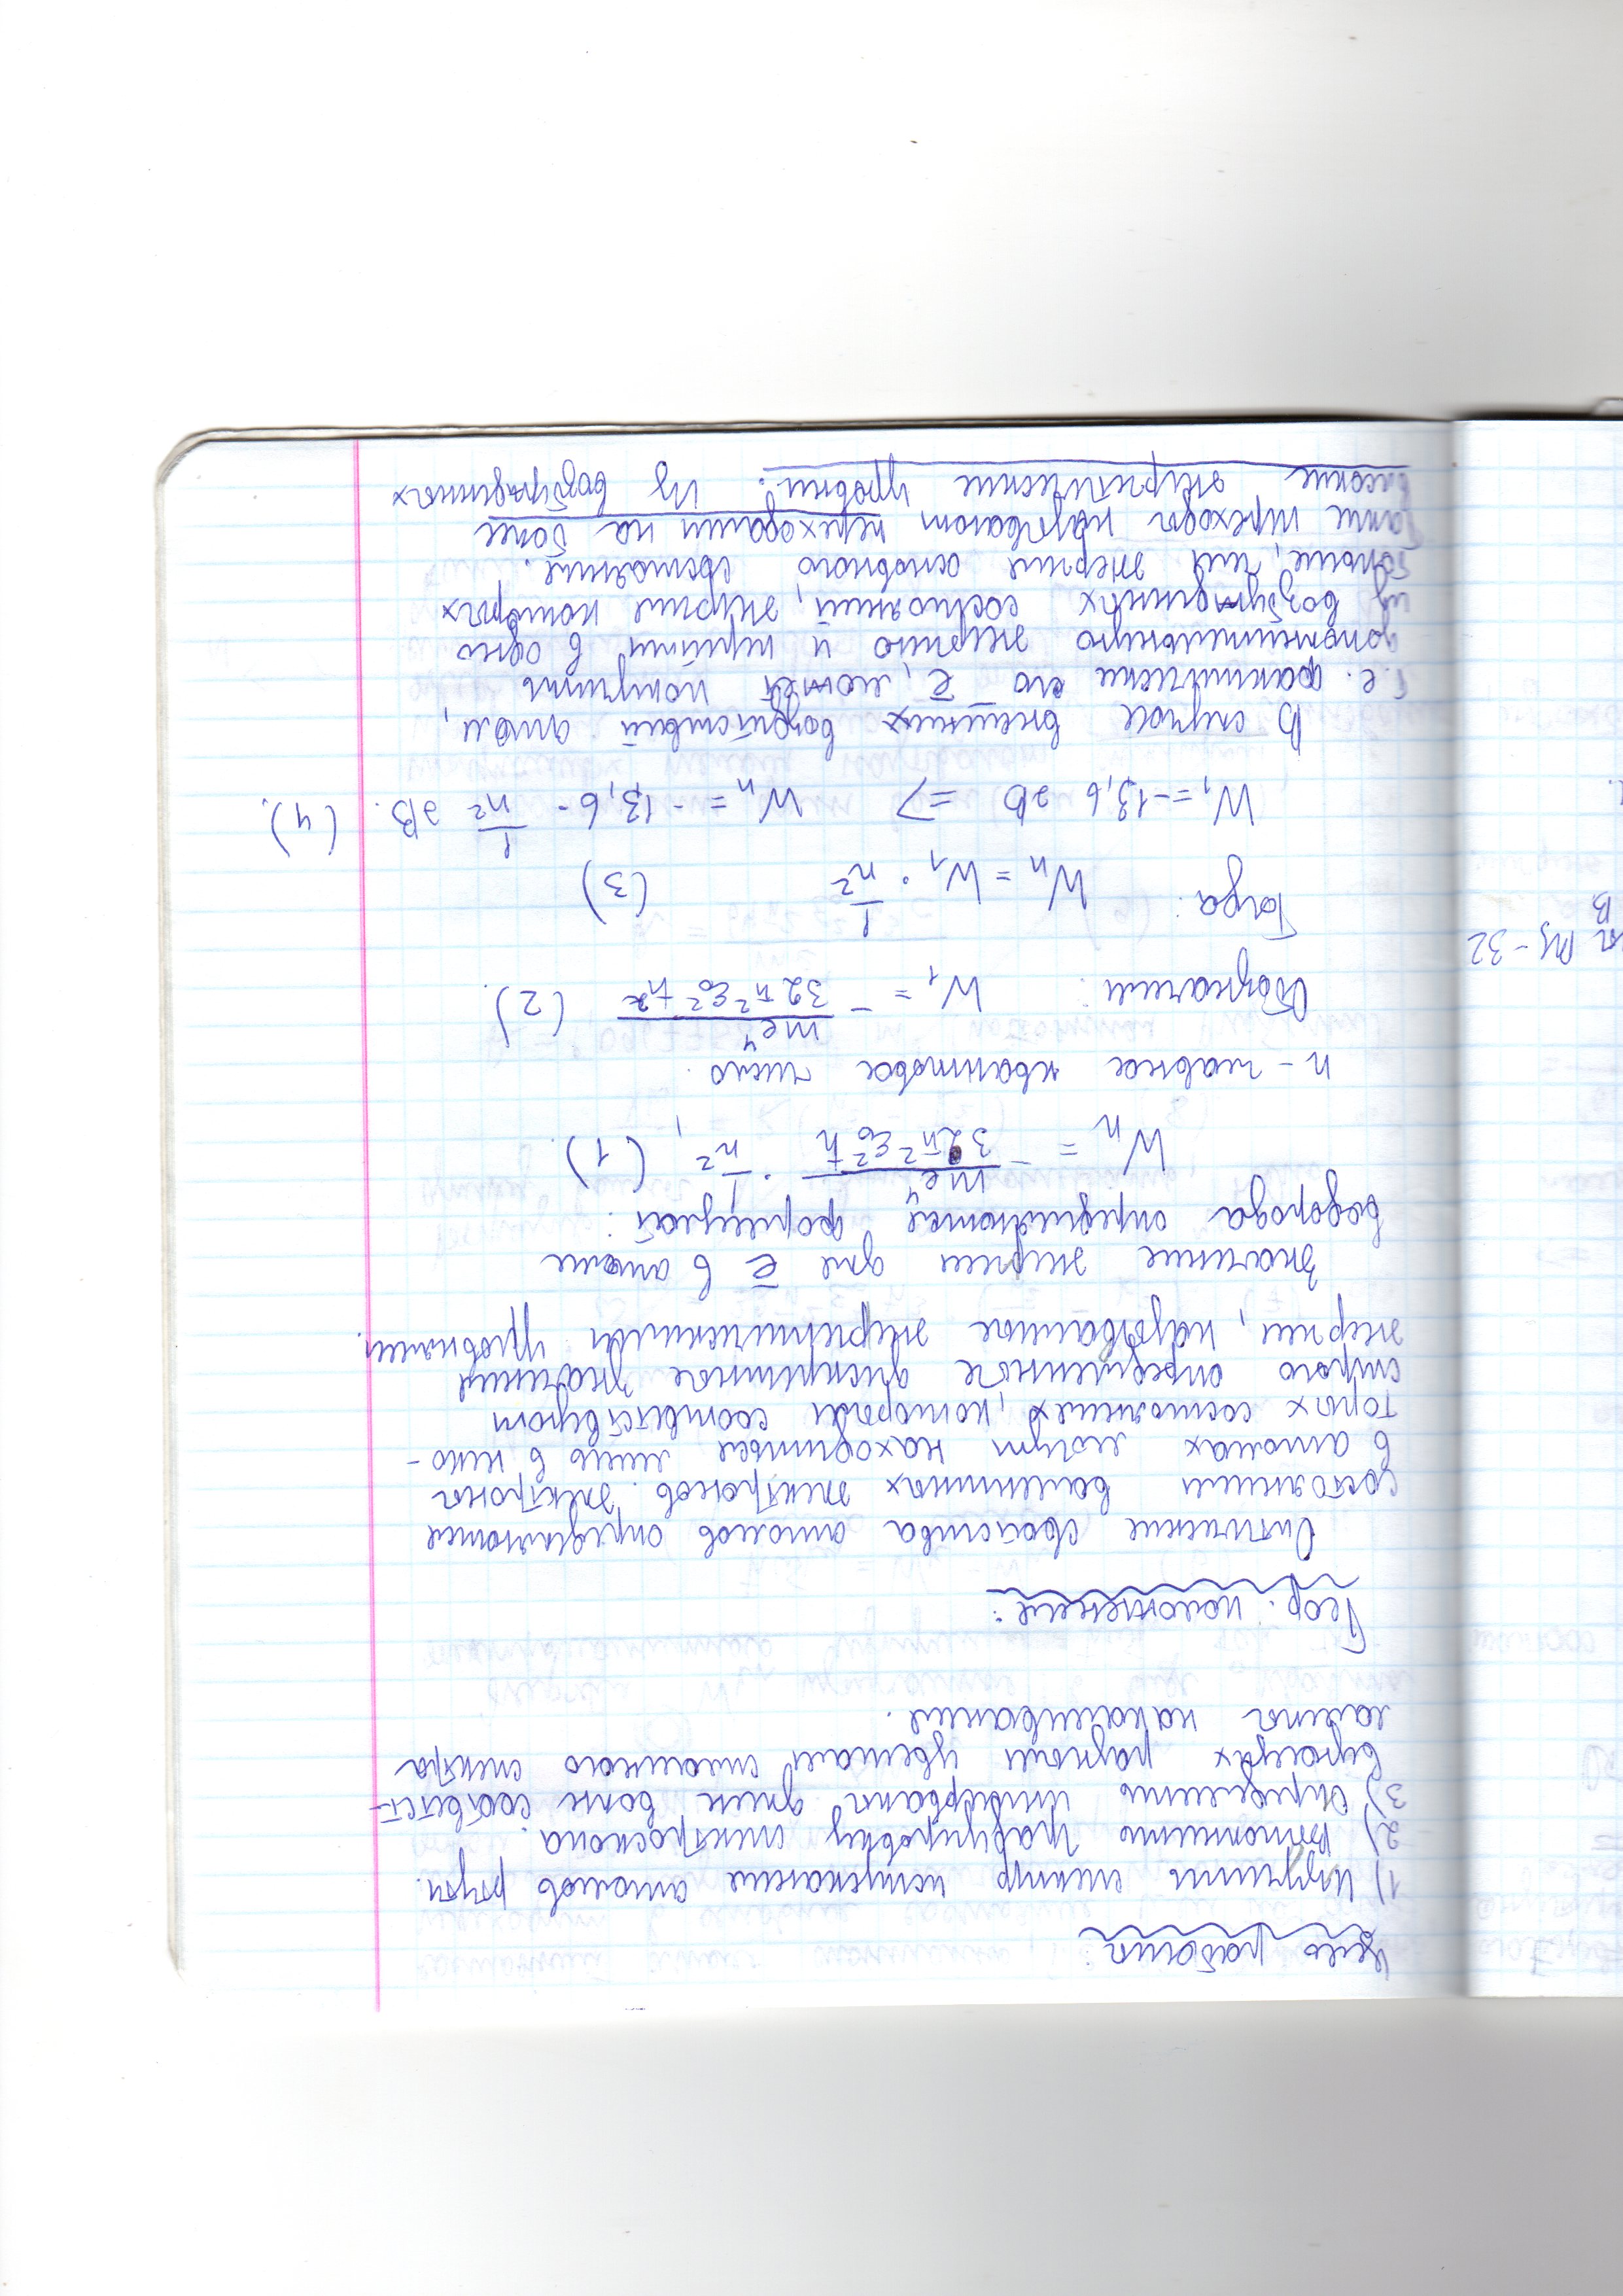 Цель работы:
1) Изучить спектр испускания атомов ртути.
2) Выполнить градуировку спектроскопа.
3) Определить интервалы длин волн соответст-
вующих разным цветам сплошного спектра
лампы накаливания.
Теор. положения:
Оптические свойства атомов определяются
состоянием валентных электронов. Электроны
в атомах могут находиться лишь в неко-
торых состояниях, которым соответствуют
строго определенные дискретные значения
энергии, называемые энергетическими уровнями.
Значение энергии для ē в атоме
водорода определяются формулой:
Wn = - me⁴ / 32π²ε₀²ħ · 1/n², (1).
n - главное квантовое число.
Обозначим: W₁ = - me⁴ / 32π²ε₀²ħ² (2).
Тогда: Wn = W₁ · 1/n² (3)
W₁ = -13,6 эВ => Wn = -13,6 - 1/n² эВ. (4).
В случае внешних воздействий атом,
т.е. фактически его ē, может получить
дополнительную энергию и перейти в одно
из возбужденных состояний, энергия которых
больше, чем энергия основного состояния.
Такие переходы называют переходами на более
высокие энергетические уровни. Из возбужденных
ы РЦ-32
В